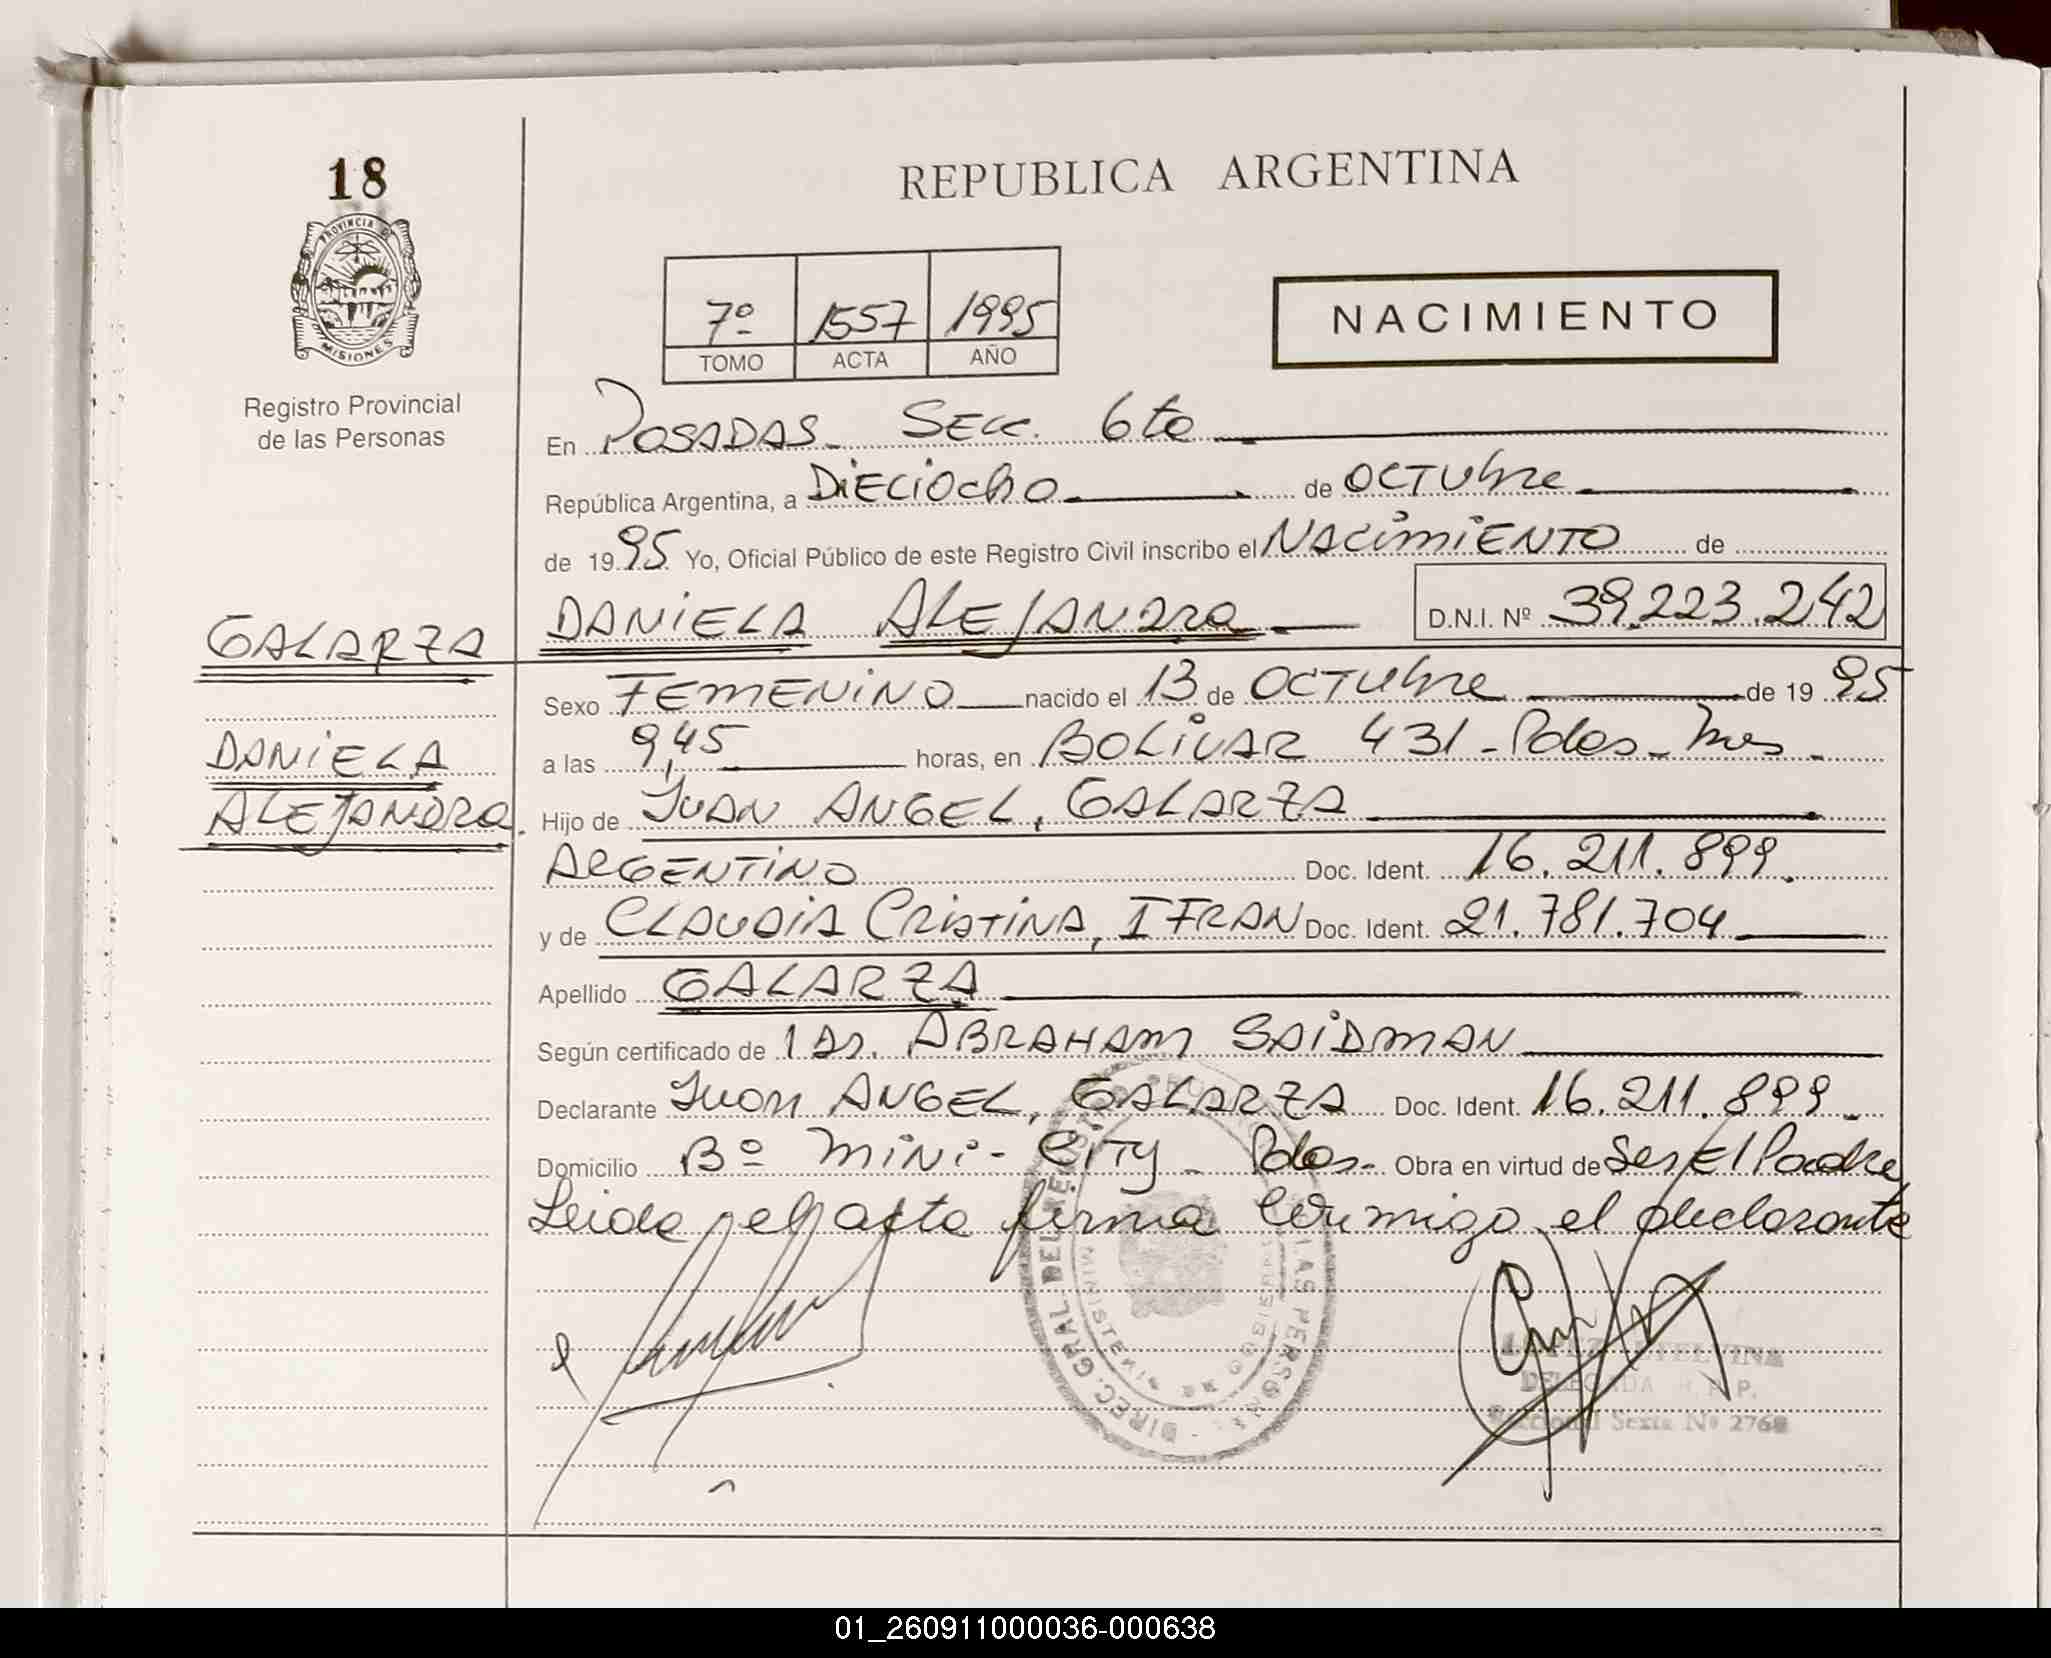 18
PROVINCIA DE
MISIONES
Registro Provincial
de las Personas
GALARZA
DANIELA
ALEJANDRA.
REPUBLICA ARGENTINA
7º 1557 1995
TOMO ACTA AÑO
NACIMIENTO
En POSADAS. SECC. 6ta
República Argentina, a DIECIOCHO de OCTUBRE
de 1995 Yo, Oficial Público de este Registro Civil inscribo el NACIMIENTO de
DANIELA ALEJANDRA D.N.I. Nº 39.223.242
Sexo FEMENINO nacido el 13 de OCTUBRE de 1995
a las 9,45 horas, en BOLIVAR 431 - Pdas - Mnes -
Hijo de JUAN ANGEL, GALARZA
ARGENTINO Doc. Ident. 16.211.899.
y de CLAUDIA CRISTINA, IFRAN Doc. Ident. 21.781.704
Apellido GALARZA
Según certificado de 1 Dr. ABRAHAM SAIDMAN
Declarante Juan ANGEL, GALARZA Doc. Ident. 16.211.899.
Domicilio Bº MINI-CITY - Pdas - Obra en virtud de Ser El Padre
Leida el acta firma conmigo el declarante
DIREC. GRAL. DEL REGISTRO PROVINCIAL DE LAS PERSONAS
MINISTERIO DE GOBIERNO
LOPEZ ETELVINA
DELEGADA R. P. P.
Seccional Sexta Nº 2768
01_260911000036-000638